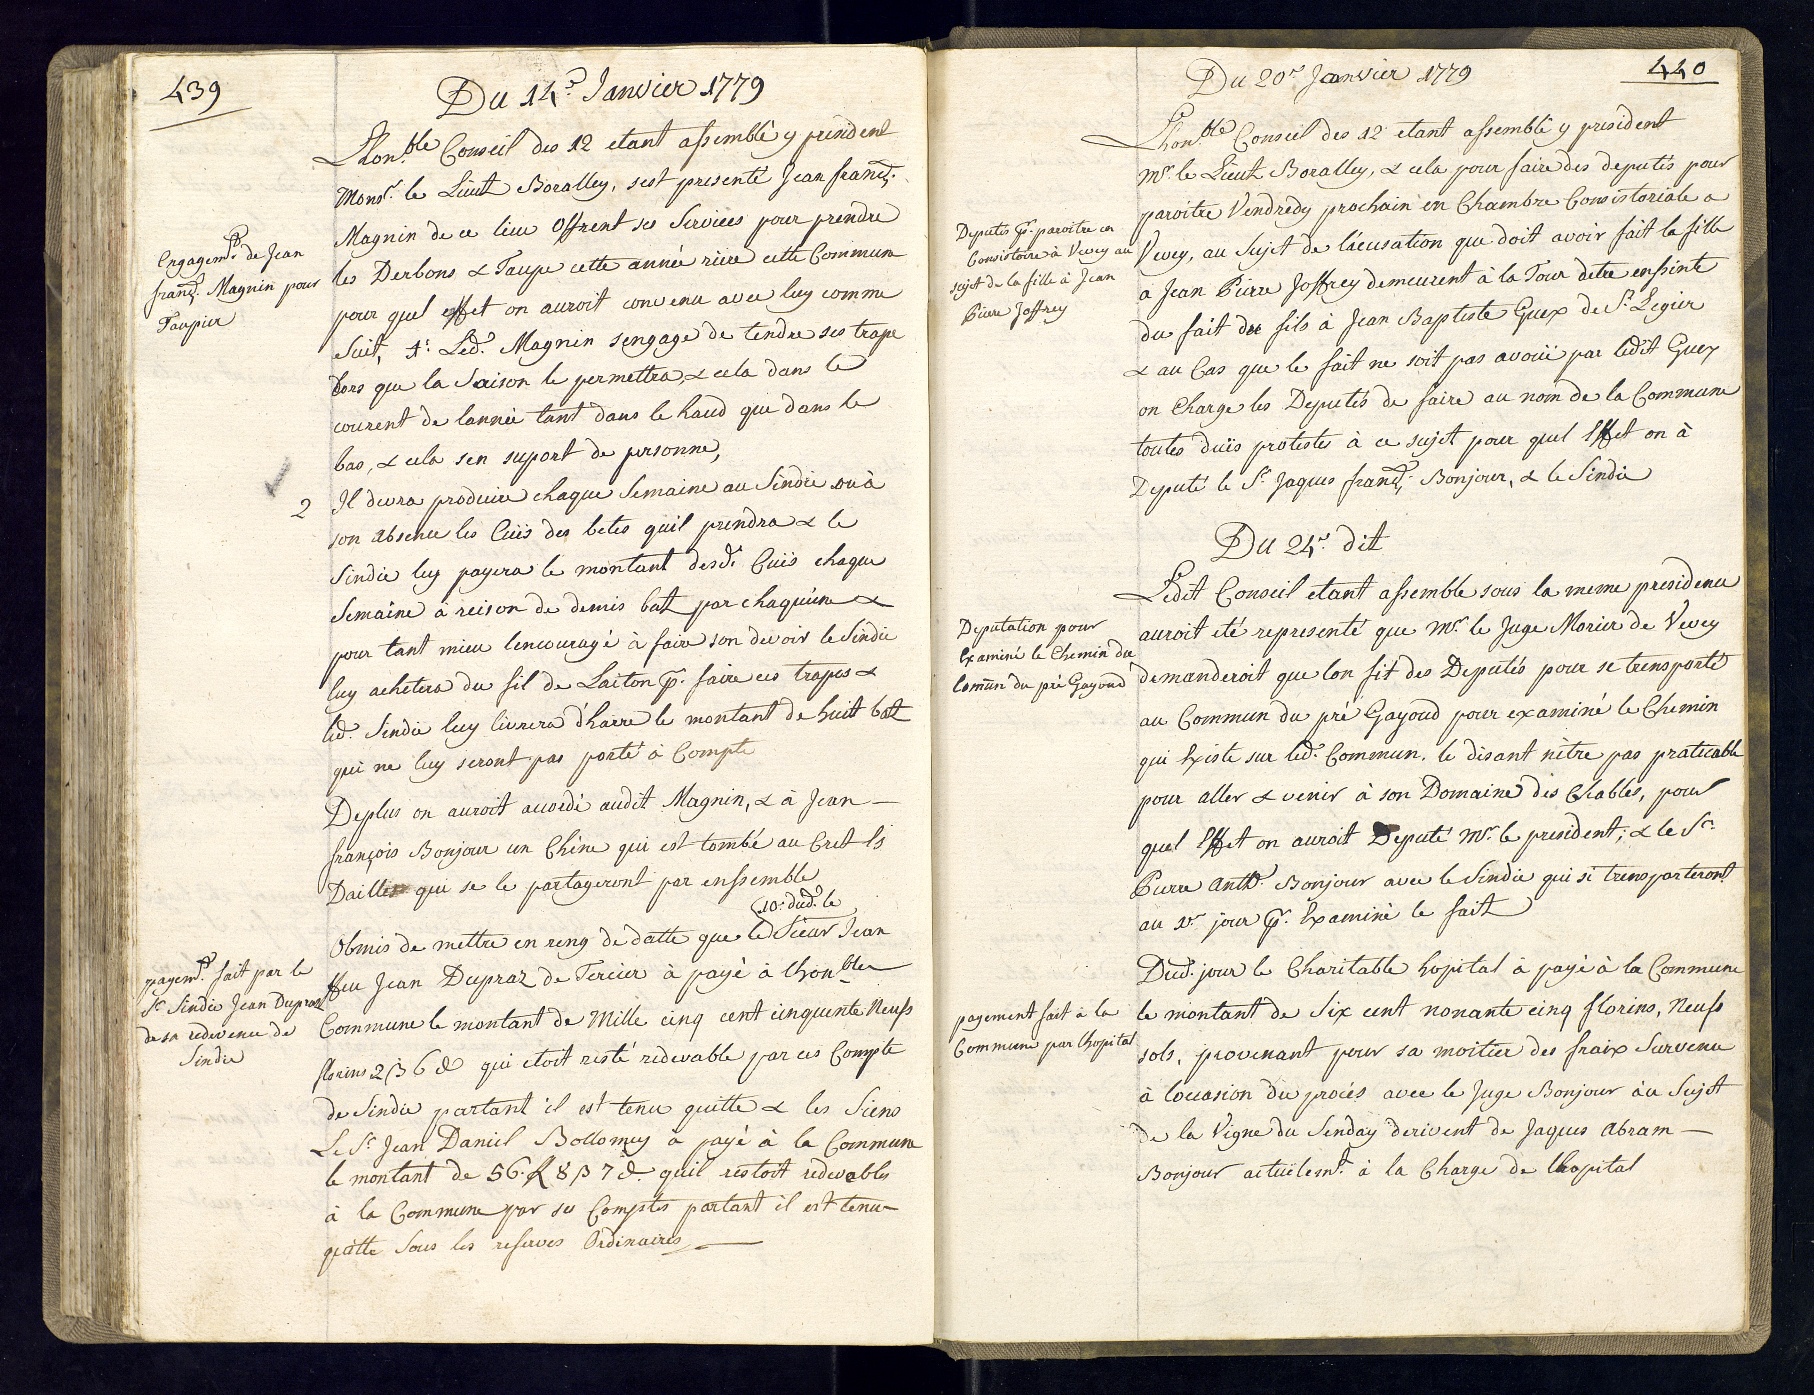 439
Du 14.e Janvier 1779
Lhon.ble Conseil des 12 etant assemblé y president
Mons.r le Lieut Boralley, sest presenté Jean franç.
Engagem.t de Jean
franç. Magnin pour
Taupier
Magnin de ce lieu Offrent ses Services pour prendre
les Derbons & Taupe cette année riere cette Commune
pour quel effet on auroit convenu avec luy comme
Suit, 1.º Led.t Magnin sengage de tendre ses trape
Lors que la Saison le permettra, & cela dans le
courent de lannée tant dans le haud que dans le
bas, & cela sen suport de personne,
2 Il devra produire chaque Semaine au Sindic ou à
son absence les Cuïs des betes quil prendra & le
Sindic luy payera le montant desd.t Cuïs chaque
Semaine à reison de demis batz par chaqu'une &
pour tant mieu lencouragé à faire son devoir le Sindic
luy achetera du fil de Laiton p.r faire ces trapes &
led.t Sindic luy livrera d'harre le montant de huit batz
qui ne luy seront pas porté à Compte
Deplus on auroit accordé audit Magnin, & à Jean
françois Bonjour un Chêne qui est tombé au Cret Es
Dailles qui se le partageront par enssemble
10.e dud.t le
Obmis de mettre en reng de datte que le Sieur Jean
payem.t fait par le
S.r Sindic Jean Dupraz
de sa redevence de
Sindic
ffeu Jean Dupraz de Tercier à payé à lhon.ble
Commune le montant de Mille cinq cent cinquente Neufs
florins 2 ß 6 d qui etoit resté redevable par ces Compte
de Sindic partant il est tenu quitte & les Siens
Le S.r Jean Daniel Bollomey à payé à la Commune
le montant de 56. fl 8 ß 7 d. quil restoit redevable
à la Commune par ses Comptes partant il est tenu
quitte Sous les reserves Ordinaires
440
Du 20.e Janvier 1779
Lhon.ble Conseil des 12 etant assemblé y president
M.r le Lieut Boralley, & cela pour faire des deputés pour
paroitre Vendredy prochain en Chambre Consistoriale a
Deputés p.r paroitre en
Consistoire à Vevey au
sujet de la fille à Jean
Pierre Joffrey
Vevey, au Sujet de lacusation que doit avoir fait la fille
a Jean Pierre Joffrey demeurent à la Tour detre enssinte
du fait du fils à Jean Baptiste Guex de S.t Legier
& au Cas que le fait ne soit pas avoüé par ledit Guex
on Charge les Deputés de faire au nom de la Commune
toutes duës protestes à ce sujet pour quel Effet on à
Deputé le S.r Jaques franç. Bonjour, & le Sindic
Du 24.e dit
Ledit Conseil etant assemble sous la meme presidence
Deputation pour
Examiné le Chemin du
Comun du pré Gayoud
auroit eté representé que M.r le Juge Morier de Vevey
demanderoit que lon fit des Deputés pour se trensporté
au Commun du pré Gayoud pour examiné le Chemin
qui Existe sur led.t Commun. le disant nêtre pas praticable
pour aller & venir à son Domaine dès Chables, pour
quel Effet on auroit Deputé M.r le president; & le S.r
Pierre Anth.e Bonjour avec le Sindic qui si trensporteront
au 1.er jour p.r Examiné le fait
Dud.t jour le Charitable hopital à payé à la Commune
payement fait à la
Commune par lhopital
le montant de Six cent nonante cinq florins, Neufs
sols, provenant pour sa moitier des fraix Survenu
à locasion du procés avec le Juge Bonjour au Sujet
de la Vigne du Senday derivent de Jaques Abram
Bonjour actuëlem.t à la Charge de lhopital